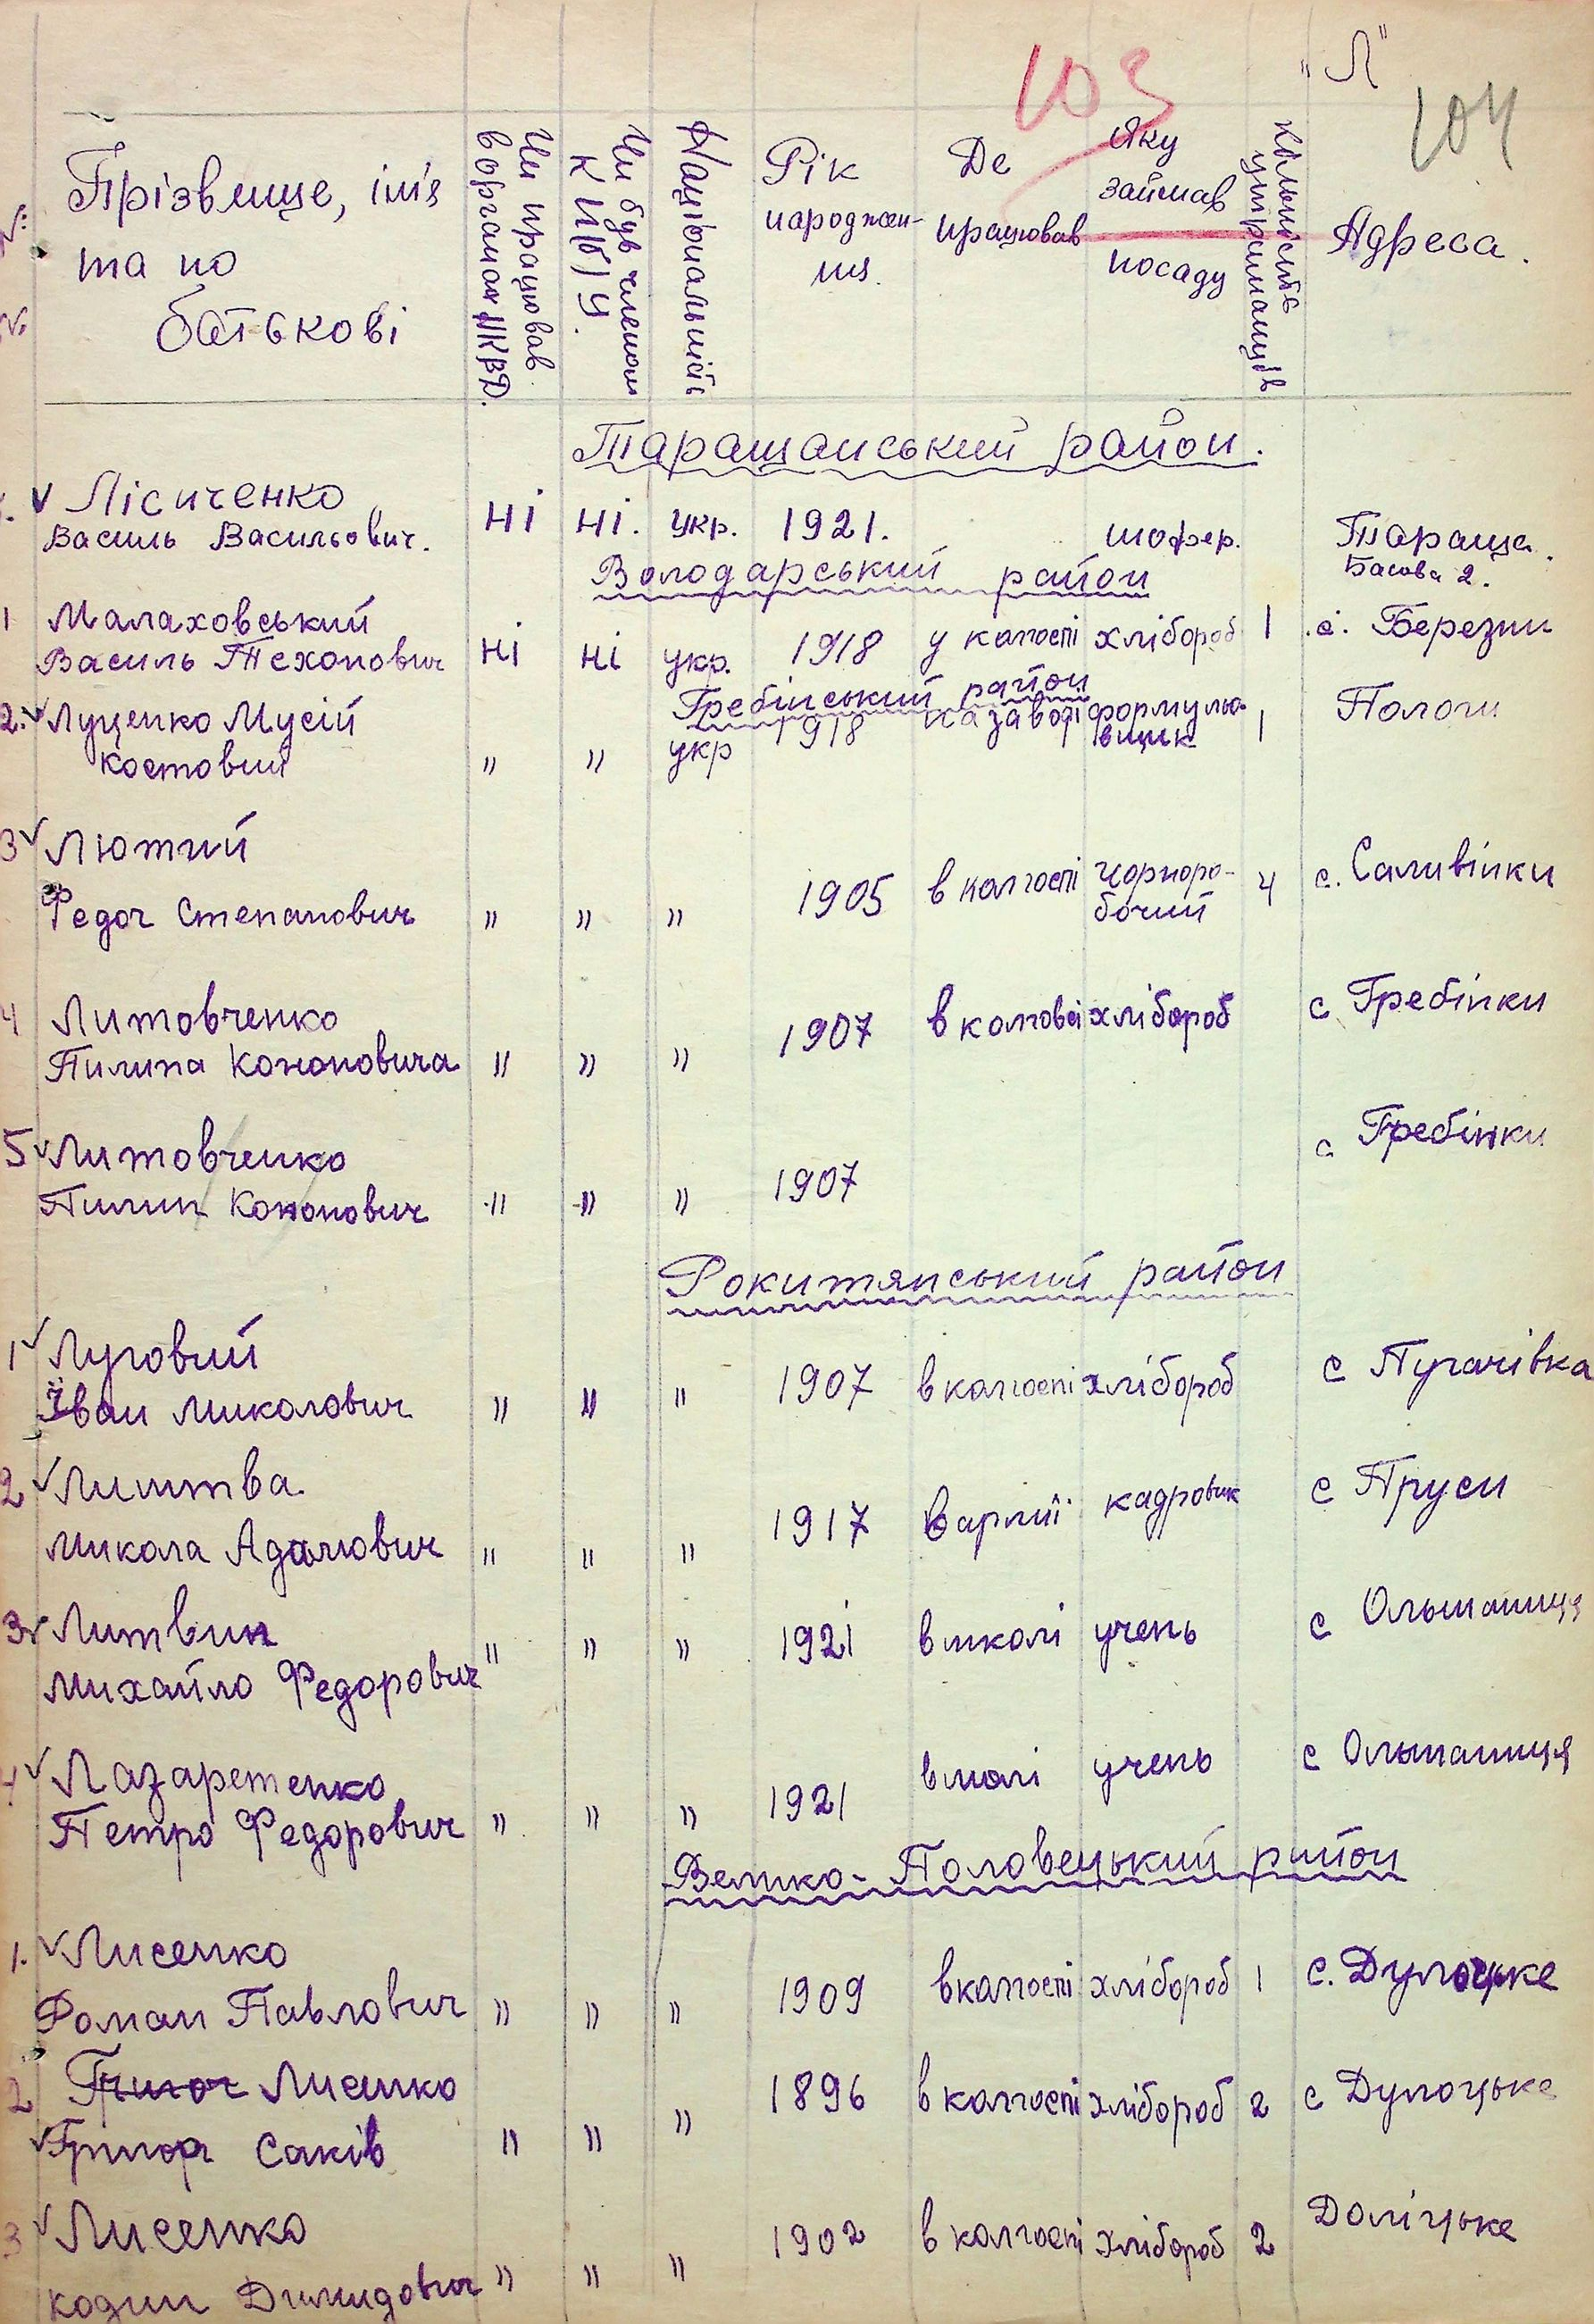 "Л"
103
104
№ №
Прізвище, ім'я та по батькові
Чи працював в органах НКВД.
Чи був членом КП(б)У.
Національність
Рік народження.
Де працював
Яку займав посаду
Кількість утриманців
Адреса.
Таращанський район.
Лісиченко ні ні. укр. 1921. шофер. Тараща.
Василь Васильович. Басова 2.
Володарський район
1 Малаховський ні ні укр. 1918 у колгоспі хлібороб 1 с. Березни
Василь Техонович
Гребінський район
2. Луценко Мусій " " укр 1918 на заводі формулю- 1 Пологи
Костович вщик
3 Лютий 1905 в колгоспі чорноро- 4 с. Саливінки
Федоч Степанович " " " бочий
4 Литовченко 1907 в колгосі хлібороб с Гребінки
Пилипа Кононовича " " "
5 Литовченко с Гребінки
Пилип Кононович " " " 1907
Рокитянський район
1 Луговий 1907 в колгоспі хлібороб с Пугачівка
Іван Миколович " " "
2 Лиштва 1917 в армії кадровик с Пруси
Микола Адамович " " "
3 Литвин " " " 1921 в школі учень с Ольшаниця
Михайло Федорович
4 Лазаретенко 1921 в шолі учень с Ольшаниця
Петро Федорович " " "
Велико-Половецький район
1. Лисенко 1909 в колгоспі хлібороб 1 с. Дулоцьке
Роман Павлович " " "
2 Лисенко 1896 в колгоспі хлібороб 2 с Дулоцьке
Григор Саків " " "
3 Лисенко 1902 в колгоспі хлібороб 2 Доліцьке
Кодин Димидович " " "